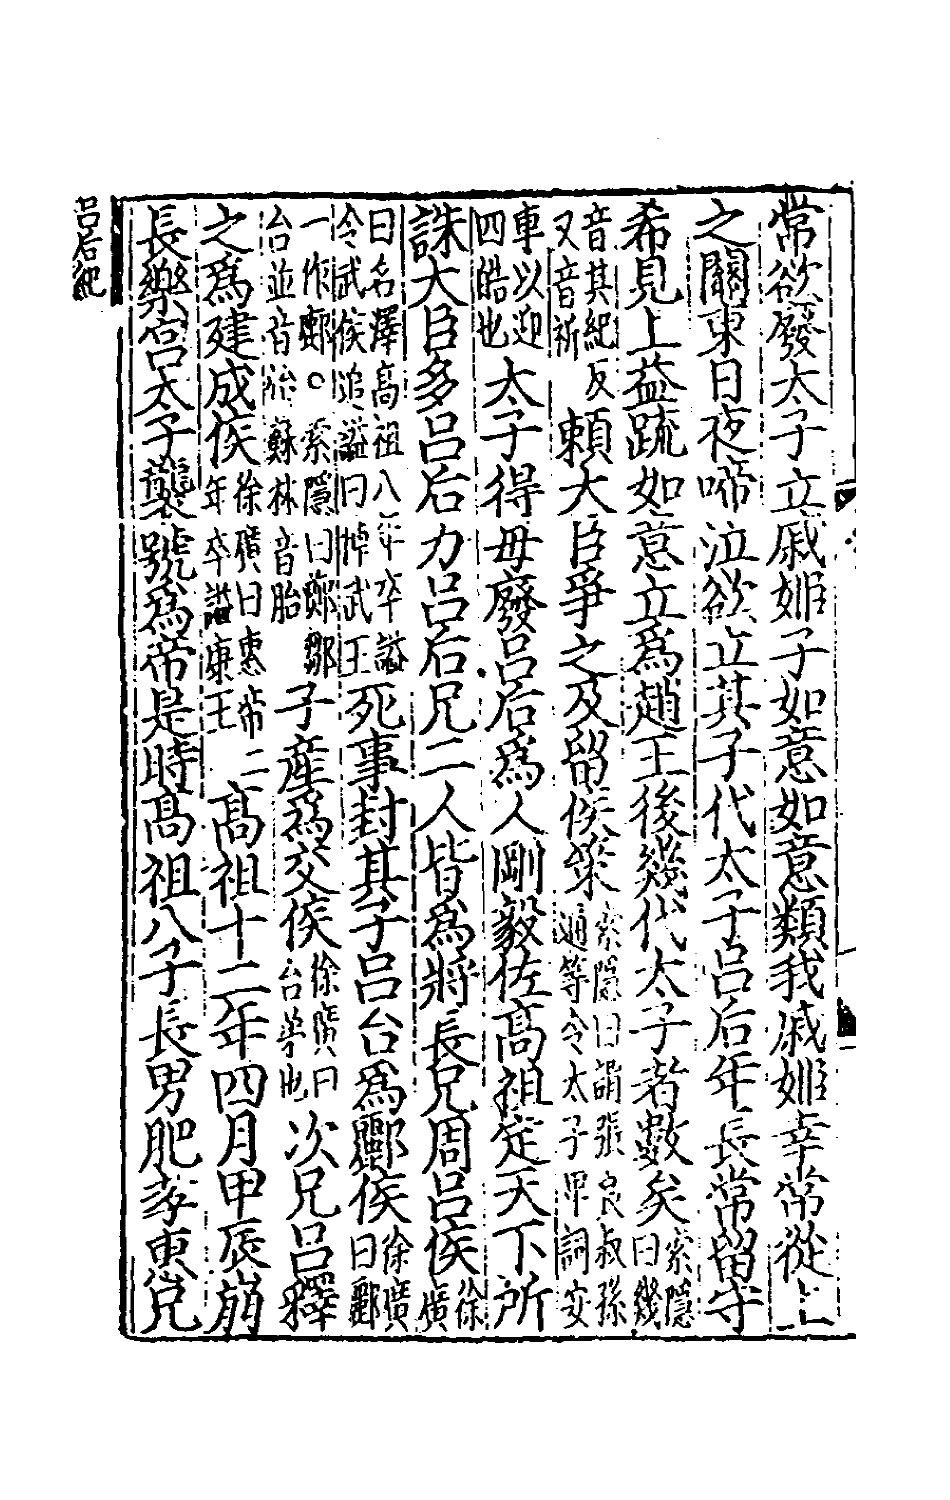 常欲廢太子立戚姬子如意如意類我戚姬幸常從上
之關東日夜啼泣欲立其子代太子呂后年長常留守
希見上益疏如意立為趙王後幾代太子者數矣索隱曰幾
音其紀反又音祈賴大臣爭之及留侯策索隱曰謂張良叔孫通等令太子卑詞安
車以迎四皓也太子得毋廢呂后為人剛毅佐高祖定天下所
誅大臣多呂后力呂后兄二人皆為將長兄周呂侯徐廣
曰名澤高祖八年卒謚令武侯追謚曰悼武王死事封其子呂台為酈侯徐廣曰酈
一作鄜。索隱曰鄭鄒台並音怡蘇林音胎子產為交侯徐廣曰台弟也次兄呂釋
之為建成侯徐廣曰惠帝二年卒謚康王高祖十二年四月甲辰崩
長樂宮太子襲號為帝是時高祖八子長男肥孝惠兄
呂后紀